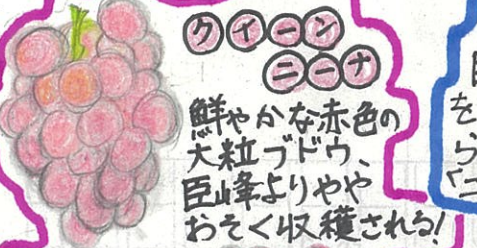 クイーン
ニーナ
鮮やかな赤色の
大粒ブドウ、
巨峰よりやや
おそく収穫される!
を
ら